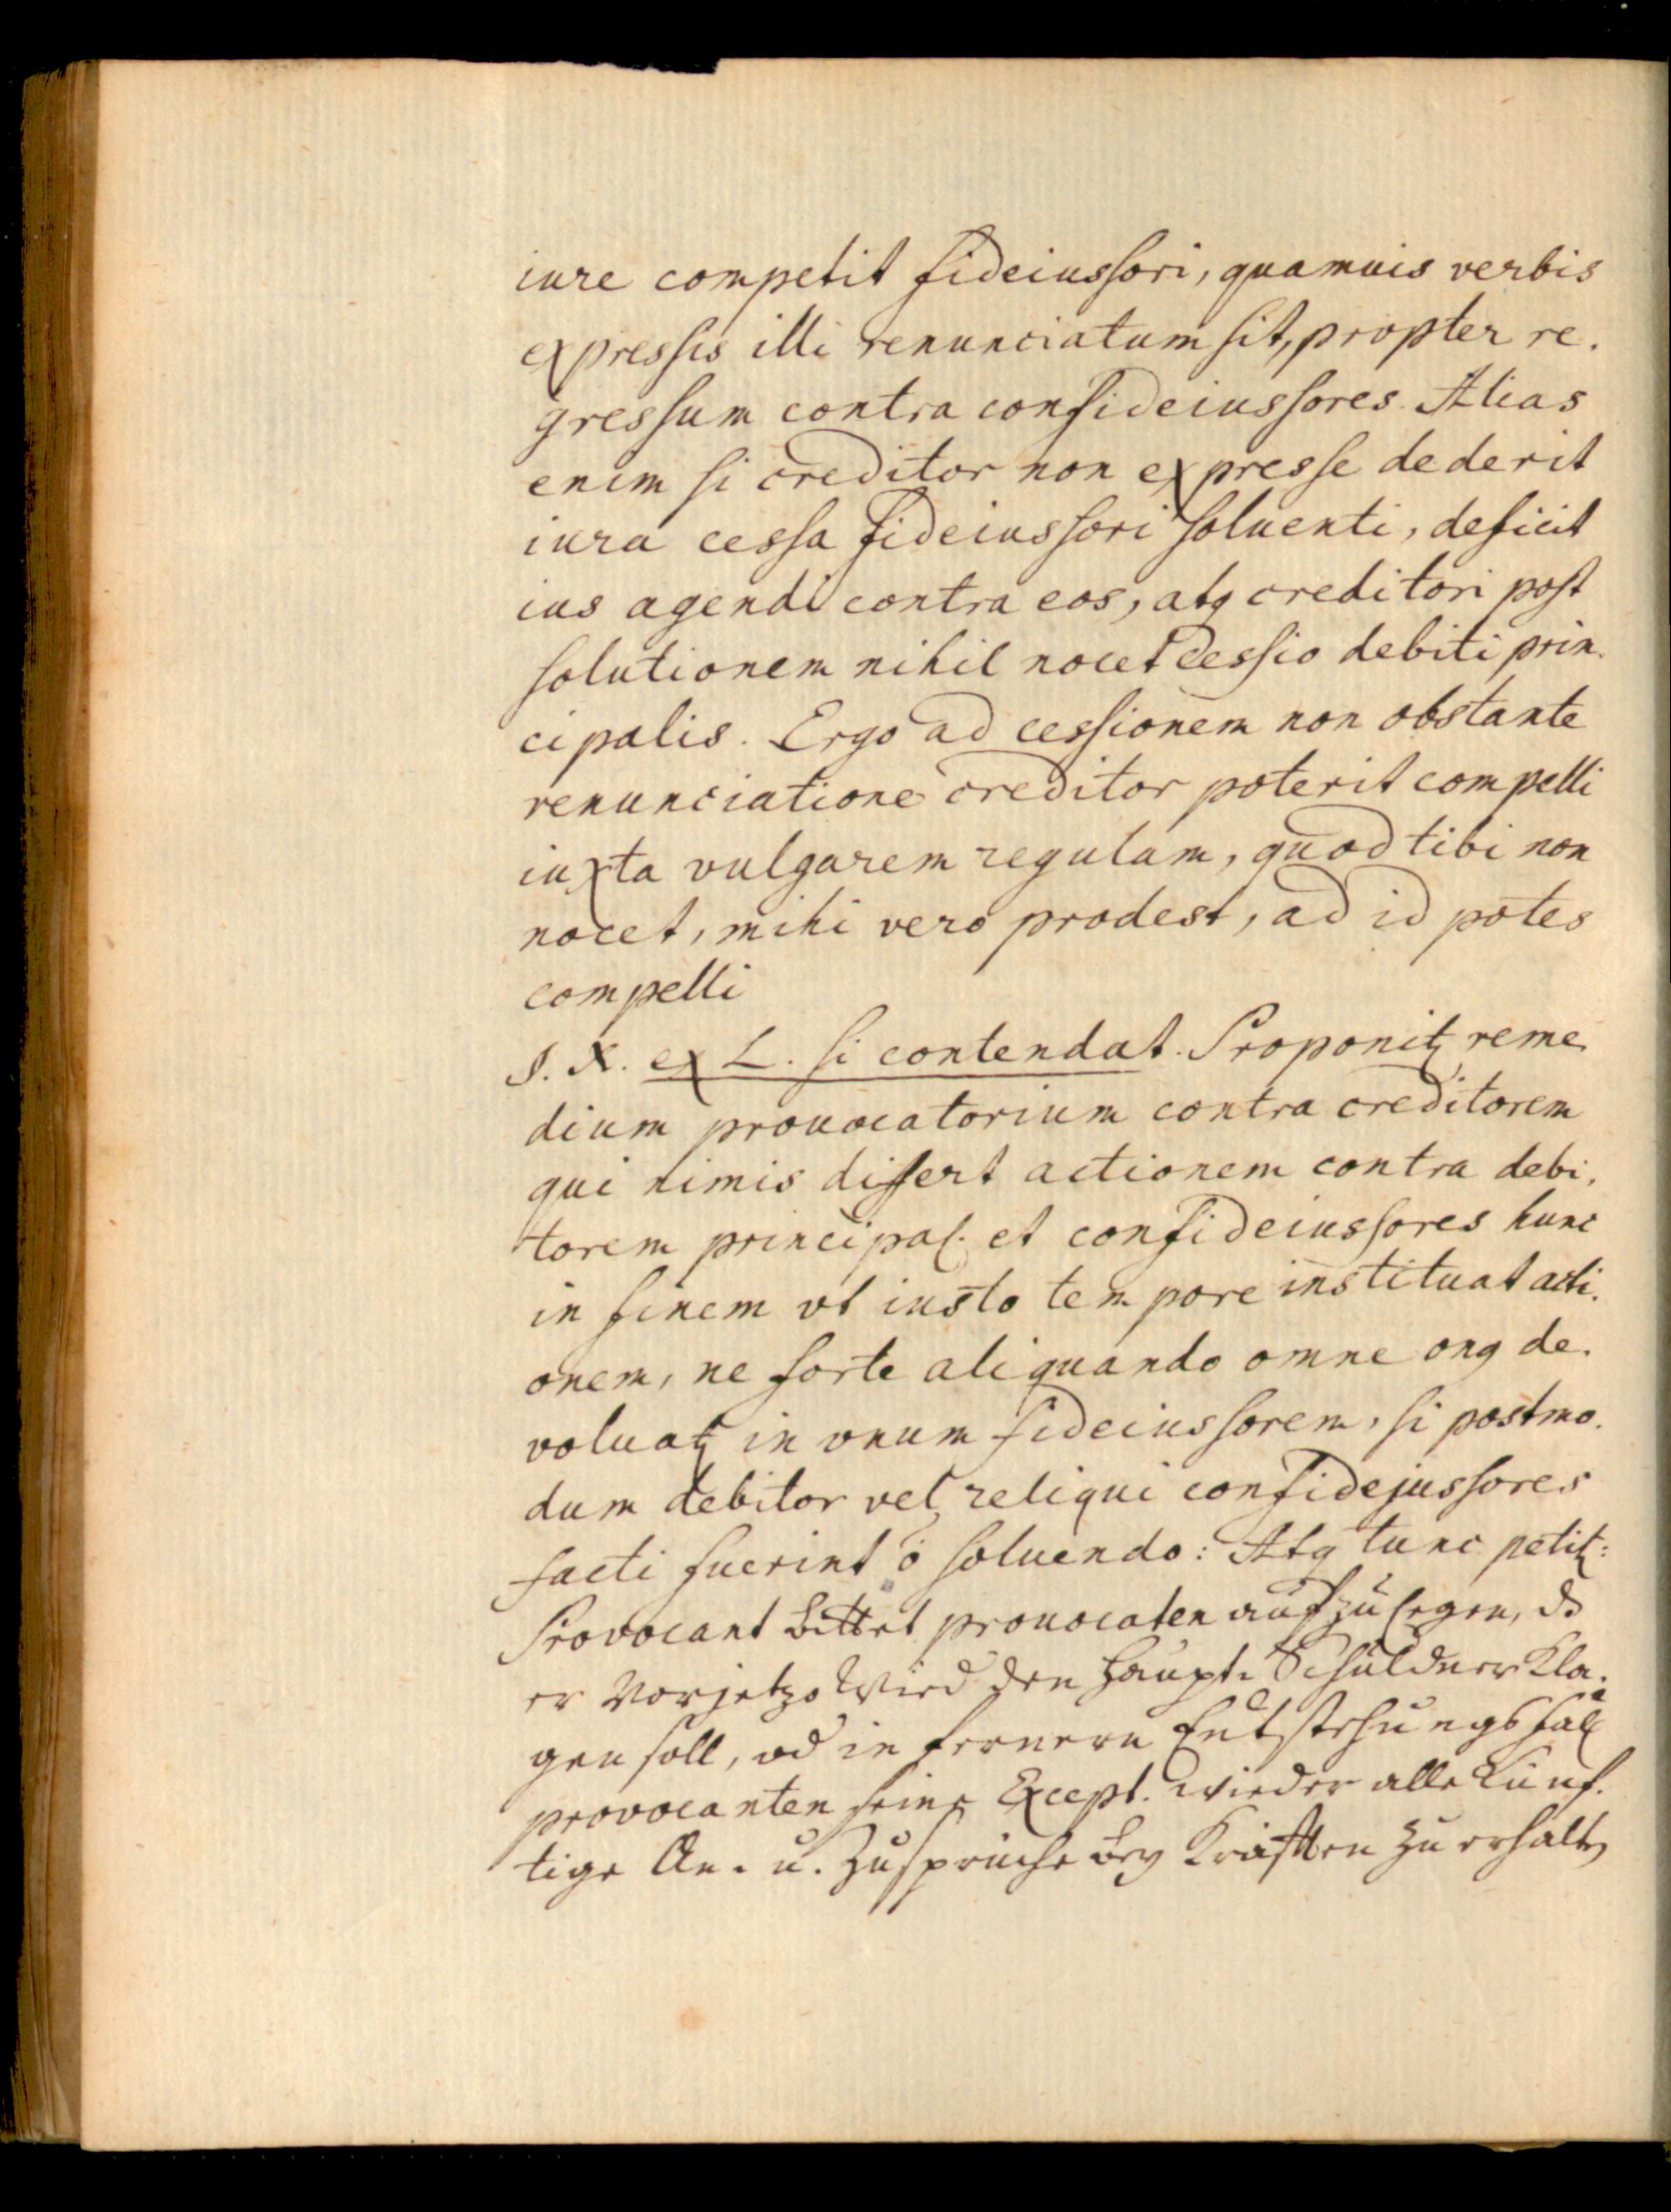 iure competit fideiussori, quamuis verbis
expressis illi renunciatum sit, propter re-
gressum contra confideiussores. Alias
enim si creditor non expresse dederit
iura cessa fideiussori soluenti, deficit
ius agendi contra eos, atq creditori post
solutionem nihil nocet cessio debiti prin-
cipalis. Ergo ad cessionem non obstante
renunciatione creditor poterit compelli
iuxta vulgarem regulam, quod tibi non
nocet, mihi vero prodest, ad id potes
compelli
§. X. ex L. si contendat. Proponitꝛ reme
dium prouocatorium contra creditorem
qui nimis differt actionem contra debi-
torem principal. et confideiussores hunc
in finem vt iusto tempore instituat acti-
onem, ne forte aliquando omne onq de-
voluatꝛ in vnum fideiussorem, si postmo-
dum debitor vel reliqui confidejussores
facti fuerint ō soluendo: Atq tunc petitꝛ:
Provocant bittet prouocaten aufzulegen, ds
er vorjetzo wied den Haupt-Schuldner kla-
gen soll, od in fernern Entstehungsfall
provocanten seine Except. wieder alle künf-
tige An- u. Zusprüche bey Kräfften zu erhalten